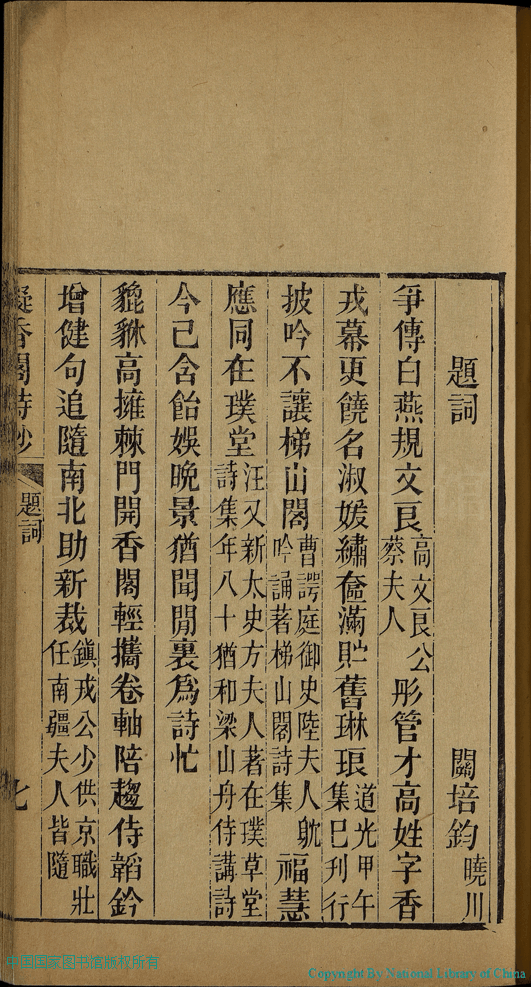 題詞　關培鈞曉川
爭傳白燕規文良高文良公蔡夫人彤管才高姓字香
戎幕更饒名淑媛繡奩滿貯舊琳琅道光甲午集巳刊行
披吟不讓梯山閣曹諤庭御史陸夫人躭吟誦著梯山閣詩集福慧
應同在璞堂汪又新太史方夫人著在璞草堂詩集年八十猶和梁山舟侍講詩
今已含飴娛晚景猶聞閒裏爲詩忙
貔貅高擁棘門開香閣輕攜卷軸陪趨侍韜鈐
增健句追隨南北助新裁鎭戎公少供京職壯任南疆夫人皆隨
凝香閣詩鈔　題詞　七
中国国家图书馆版权所有
Copyright By National Library of China